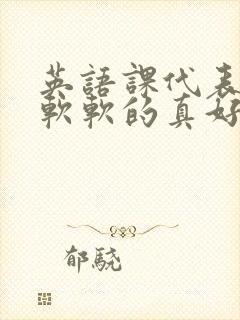 英語課代表
軟軟的真好
郁驍